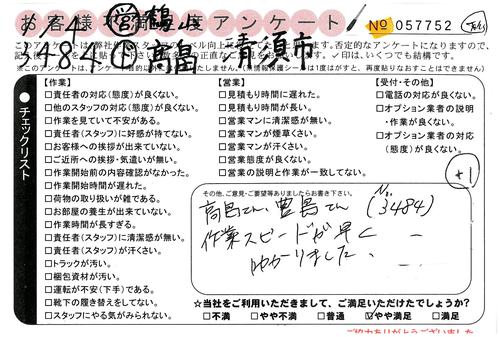 お客様満足度アンケート
No 057752
3484
清須市
このアンケートは
否定的なアンケートになりますので、
チェックリスト
【作業】
□責任者の対応(態度)が良くない。
□他のスタッフの対応(態度)が良くない。
□作業を見ていて不安がある。
□責任者(スタッフ)に好感が持てない。
□お客様への挨拶が出来ていない。
□ご近所への挨拶・気遣いが無い。
□作業開始前の内容確認がなかった。
□作業開始時間が遅れた。
□荷物の取り扱いが雑である。
□お部屋の養生が出来ていない。
□作業時間が長すぎる。
□責任者(スタッフ)に清潔感が無い。
□責任者(スタッフ)が汗くさい。
□トラックが汚い。
□梱包資材が汚い。
□運転が不安(下手)である。
□靴下の履き替えをしてない。
□スタッフにやる気がみられない。
【営業】
□見積もり時間に遅れた。
□見積もり時間が長い。
□営業マンに清潔感が無い。
□営業マンが煙草くさい。
□営業マンが汗くさい。
□営業態度が良くない。
□営業の説明と作業が一致してない。
【受付・その他】
□電話の対応が良くない。
□オプション業者の説明・作業が良くない。
□オプション業者の対応(態度)が良くない。
+1
その他、ご意見・ご要望等ありましたらお書き下さい。
高島さん、豊島さん (No.3484)
作業スピードが早く
助かりました、
☆当社をご利用いただきまして、ご満足いただけたでしょうか?
□不満 □やや不満 □普通 ☑やや満足 □満足
ご協力ありがとうございました